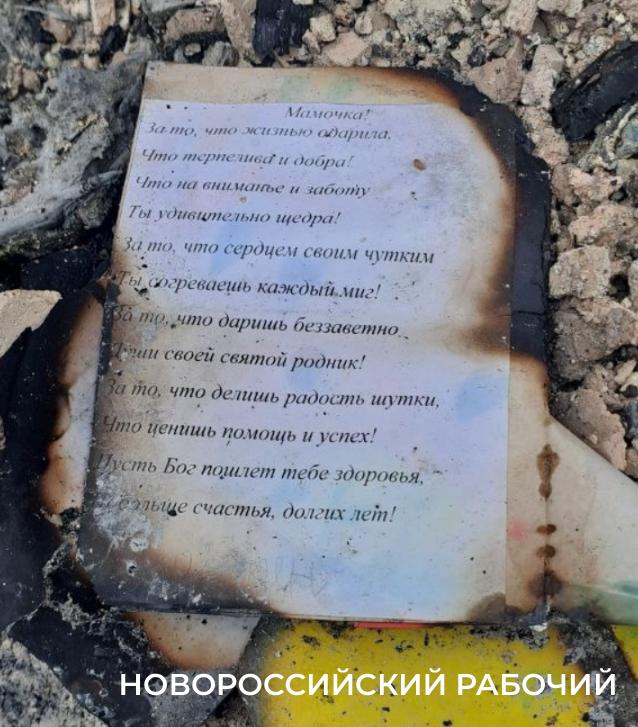 Мамочка!
За то, что жизнью одарила,
Что терпелива и добра!
Что на вниманье и заботу
Ты удивительно щедра!
За то, что сердцем своим чутким
Ты согреваешь каждый миг!
За то, что даришь беззаветно
Души своей святой родник!
За то, что делишь радость шутки,
Что ценишь помощь и успех!
Пусть Бог пошлет тебе здоровья,
больше счастья, долгих лет!
НОВОРОССИЙСКИЙ РАБОЧИЙ